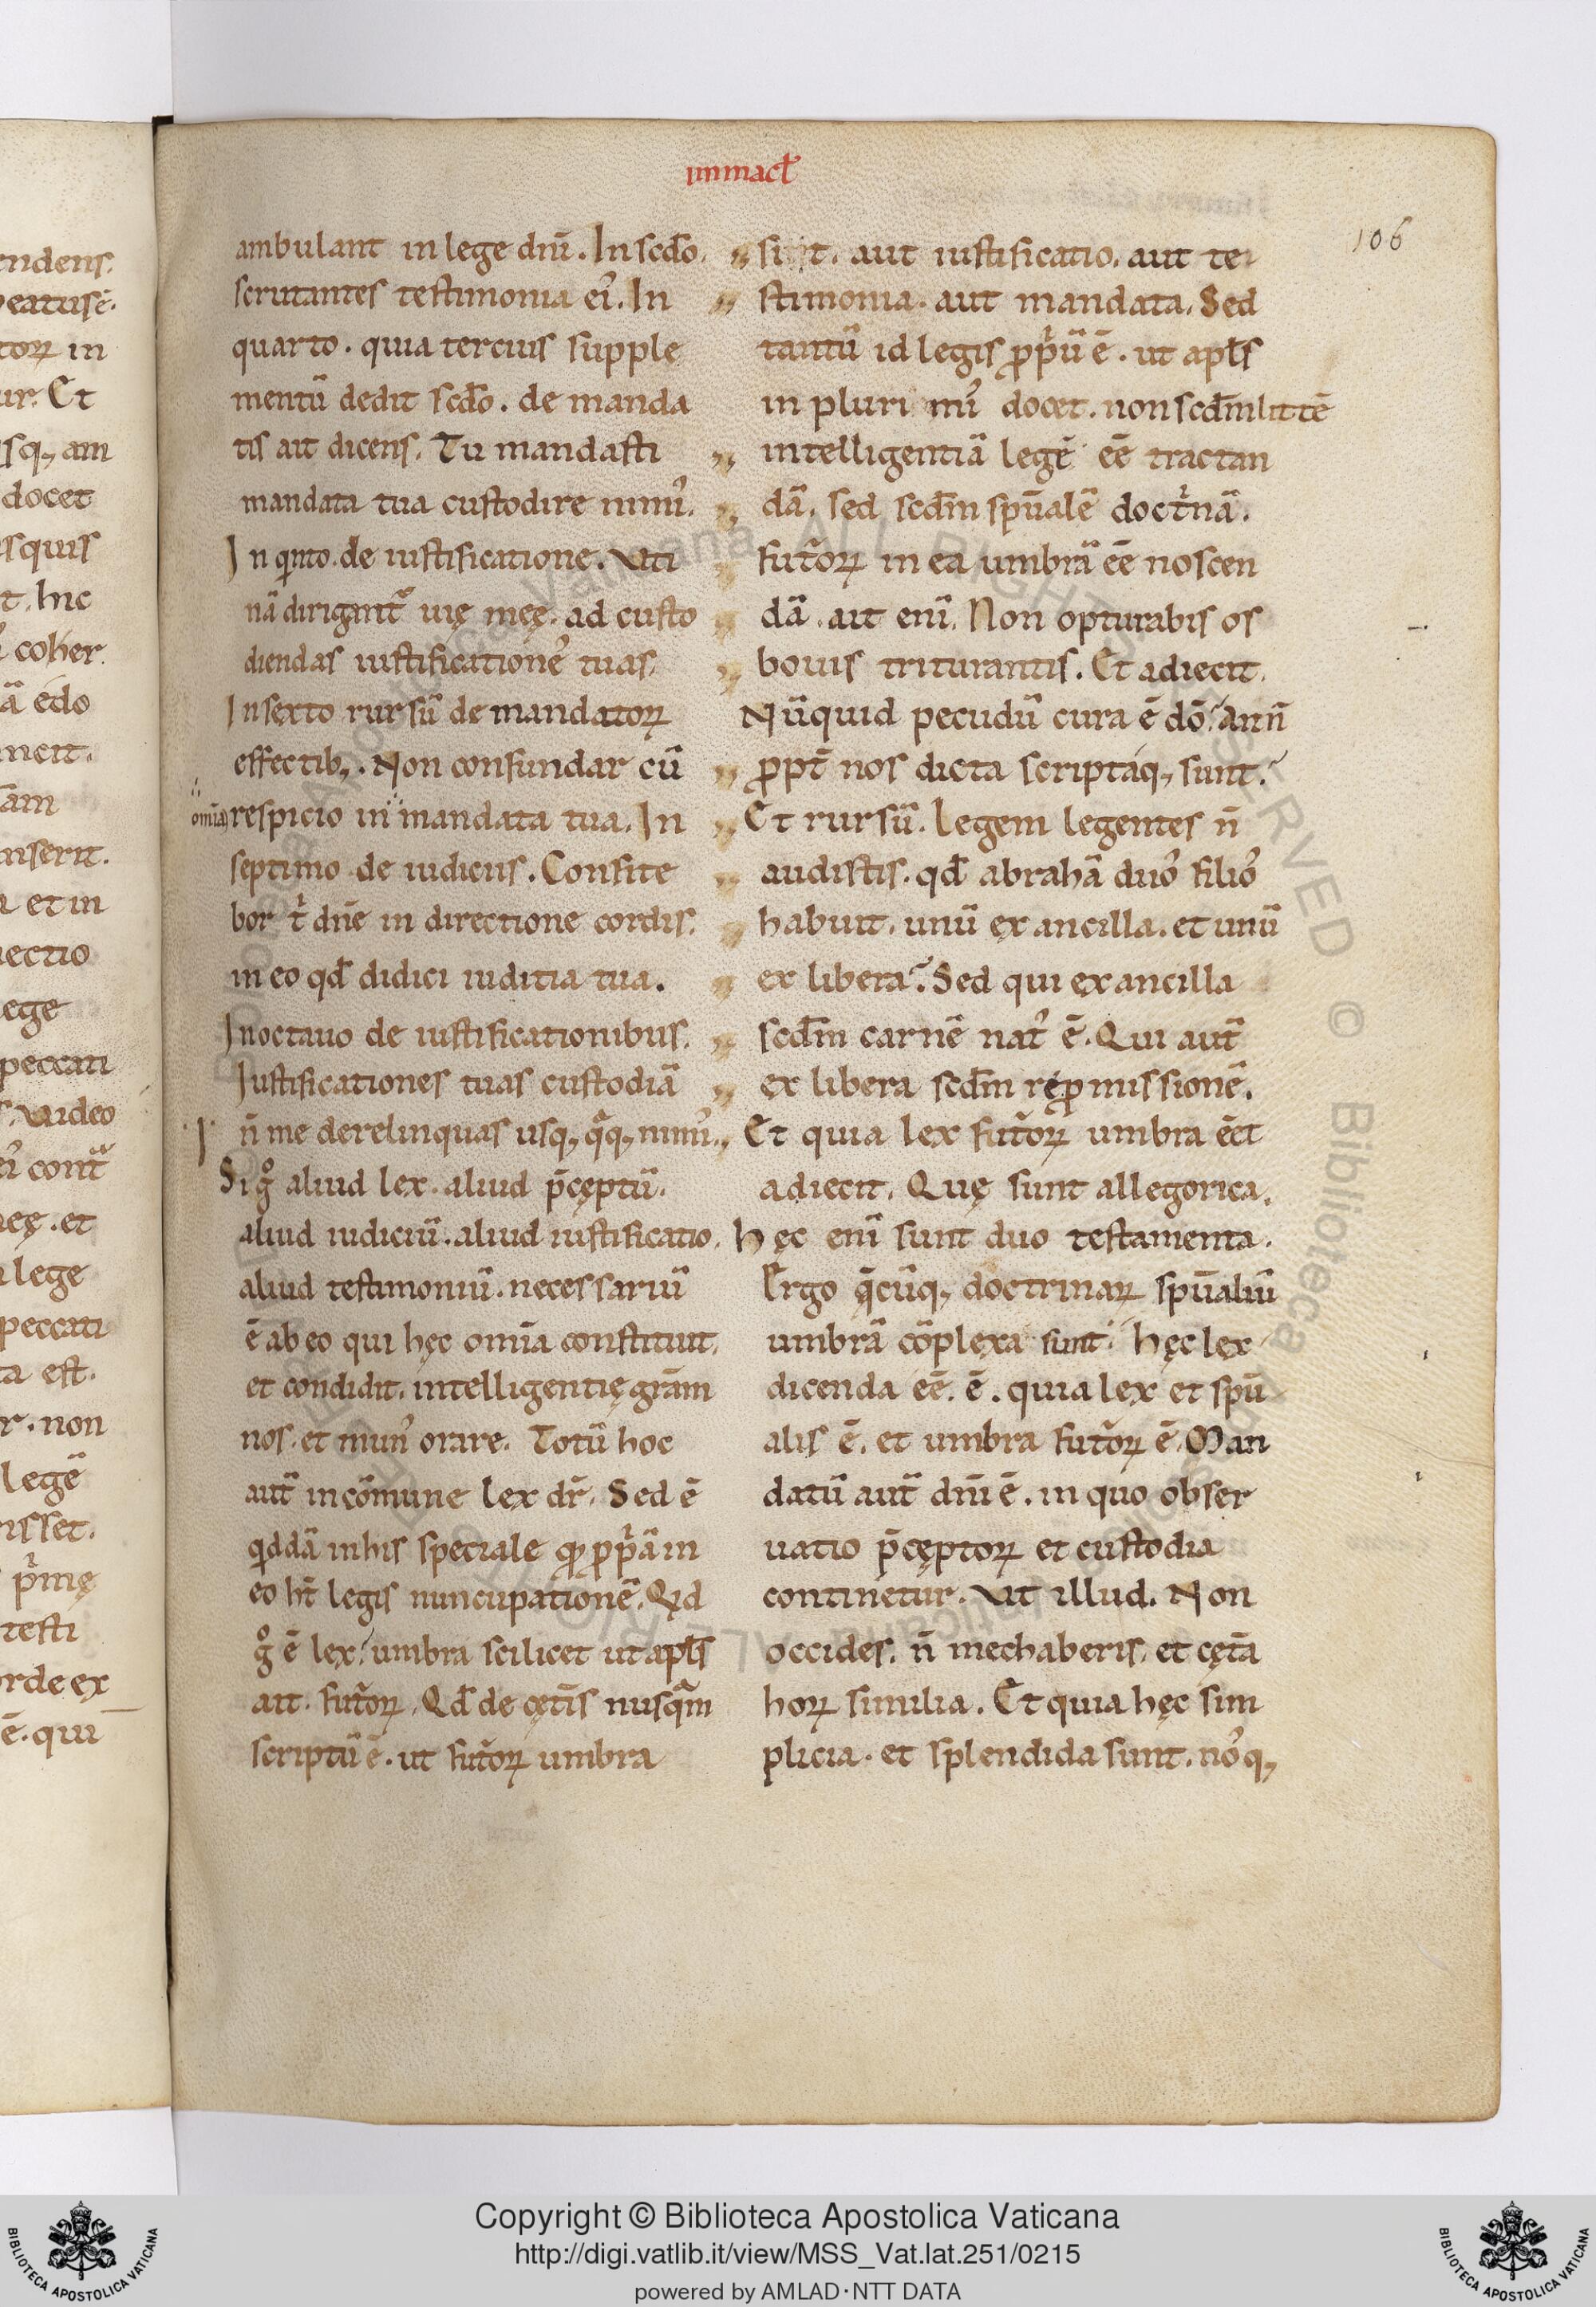 immacł
106
ambulant in lege dnī. In scdo.
scrutantes testimonia ei᾽. In
quarto. quia tercius supple
mentū dedit scdo. de manda
tis ait dicens. Tu mandasti
mandata tua custodire nimi᾽.
In qinto. de iustificatione. Uti
nā dirigant᷑ uię męę. ad custo
diendas iustificatione᾽ tuas.
In sexto rursū de mandatoꝝ
effectibꝫ. Non confundar cū
omīa respicio in mandata tua. In
septimo de iudiciis. Confite
bor t̍ dnē in directione cordis.
in eo qd̄ didici iuditia tua.
In octauo de iustificationibus.
Iustificationes tuas custodiā
n̄ me derelinquas usqꝫ q̄qꝫ nimi᾽.
Si gͦ aliud lex. aliud p̄cęptū.
aliud iudiciū. aliud iustificatio.
aliud testimoniū. necessariū
ē ab eo qui hęc omīa constituit.
et condidit. intelligentię grām
nos. et mun᾽ orare. Totū hoc
aut̄ in cōmune lex dr̄. Sed ē
qddā in his speciale qđ ꝓp̍ā in
eo ht̄ legis nuncupationē. Qid
gͦ ē lex? umbra scilicet ut apłs
ait. futōꝝ. Qd̄ de cęt̄is nusq̄m
scriptū ē. ut futōꝝ umbra
sint. aut iustificatio. aut te
stimonia. aut mandata. Sed
tantū id legis ꝓp̍ū ē. ut apłs
in plurimi᾽ docet. non scdm litt̄ē
intelligentiā legē eē tractan
dā. sed scdm spūalē doct̍nā.
futōꝝ in ea umbrā eē noscen
dā. ait enī. Non opturabis os
bouis triturantis. Et adiecit.
Nūquid pecudū cura ē dō? an n̄
ꝓpt̄ nos dicta scriptaqꝫ sunt?
Et rursū. Legem legentes n̄
audistis. qd̄ abrahā duo᾽ filio᾽
habuit. unū ex ancilla. et unū
ex libera? Sed qui ex ancilla
scdm carnē nat᾽ ē. Qui aut̄
ex libera scdm reꝓmissionē.
Et quia lex futōꝝ umbra ēēt
adiecit. Quę sunt allegorica.
hęc enī sunt duo testamenta.
Ergo q̄cūqꝫ doctrinaꝝ spūaliū
umbrā cōplexa sunt. hęc lex
dicenda eē. ē. quia lex et spū
alis ē. et umbra futōꝝ ē. Man
datū aut̄ dnī ē. in quo obser
uatio p̄cęptoꝝ et custodia
continetur. Ut illud. Non
occides. n̄ mechaberis. et cęt̄a
hoꝝ similia. Et quia hęc sim
plicia. et splendida sunt. no᾽qꝫ
Copyright © Biblioteca Apostolica Vaticana
http://digi.vatlib.it/view/MSS_Vat.lat.251/0215
powered by AMLAD·NTT DATA